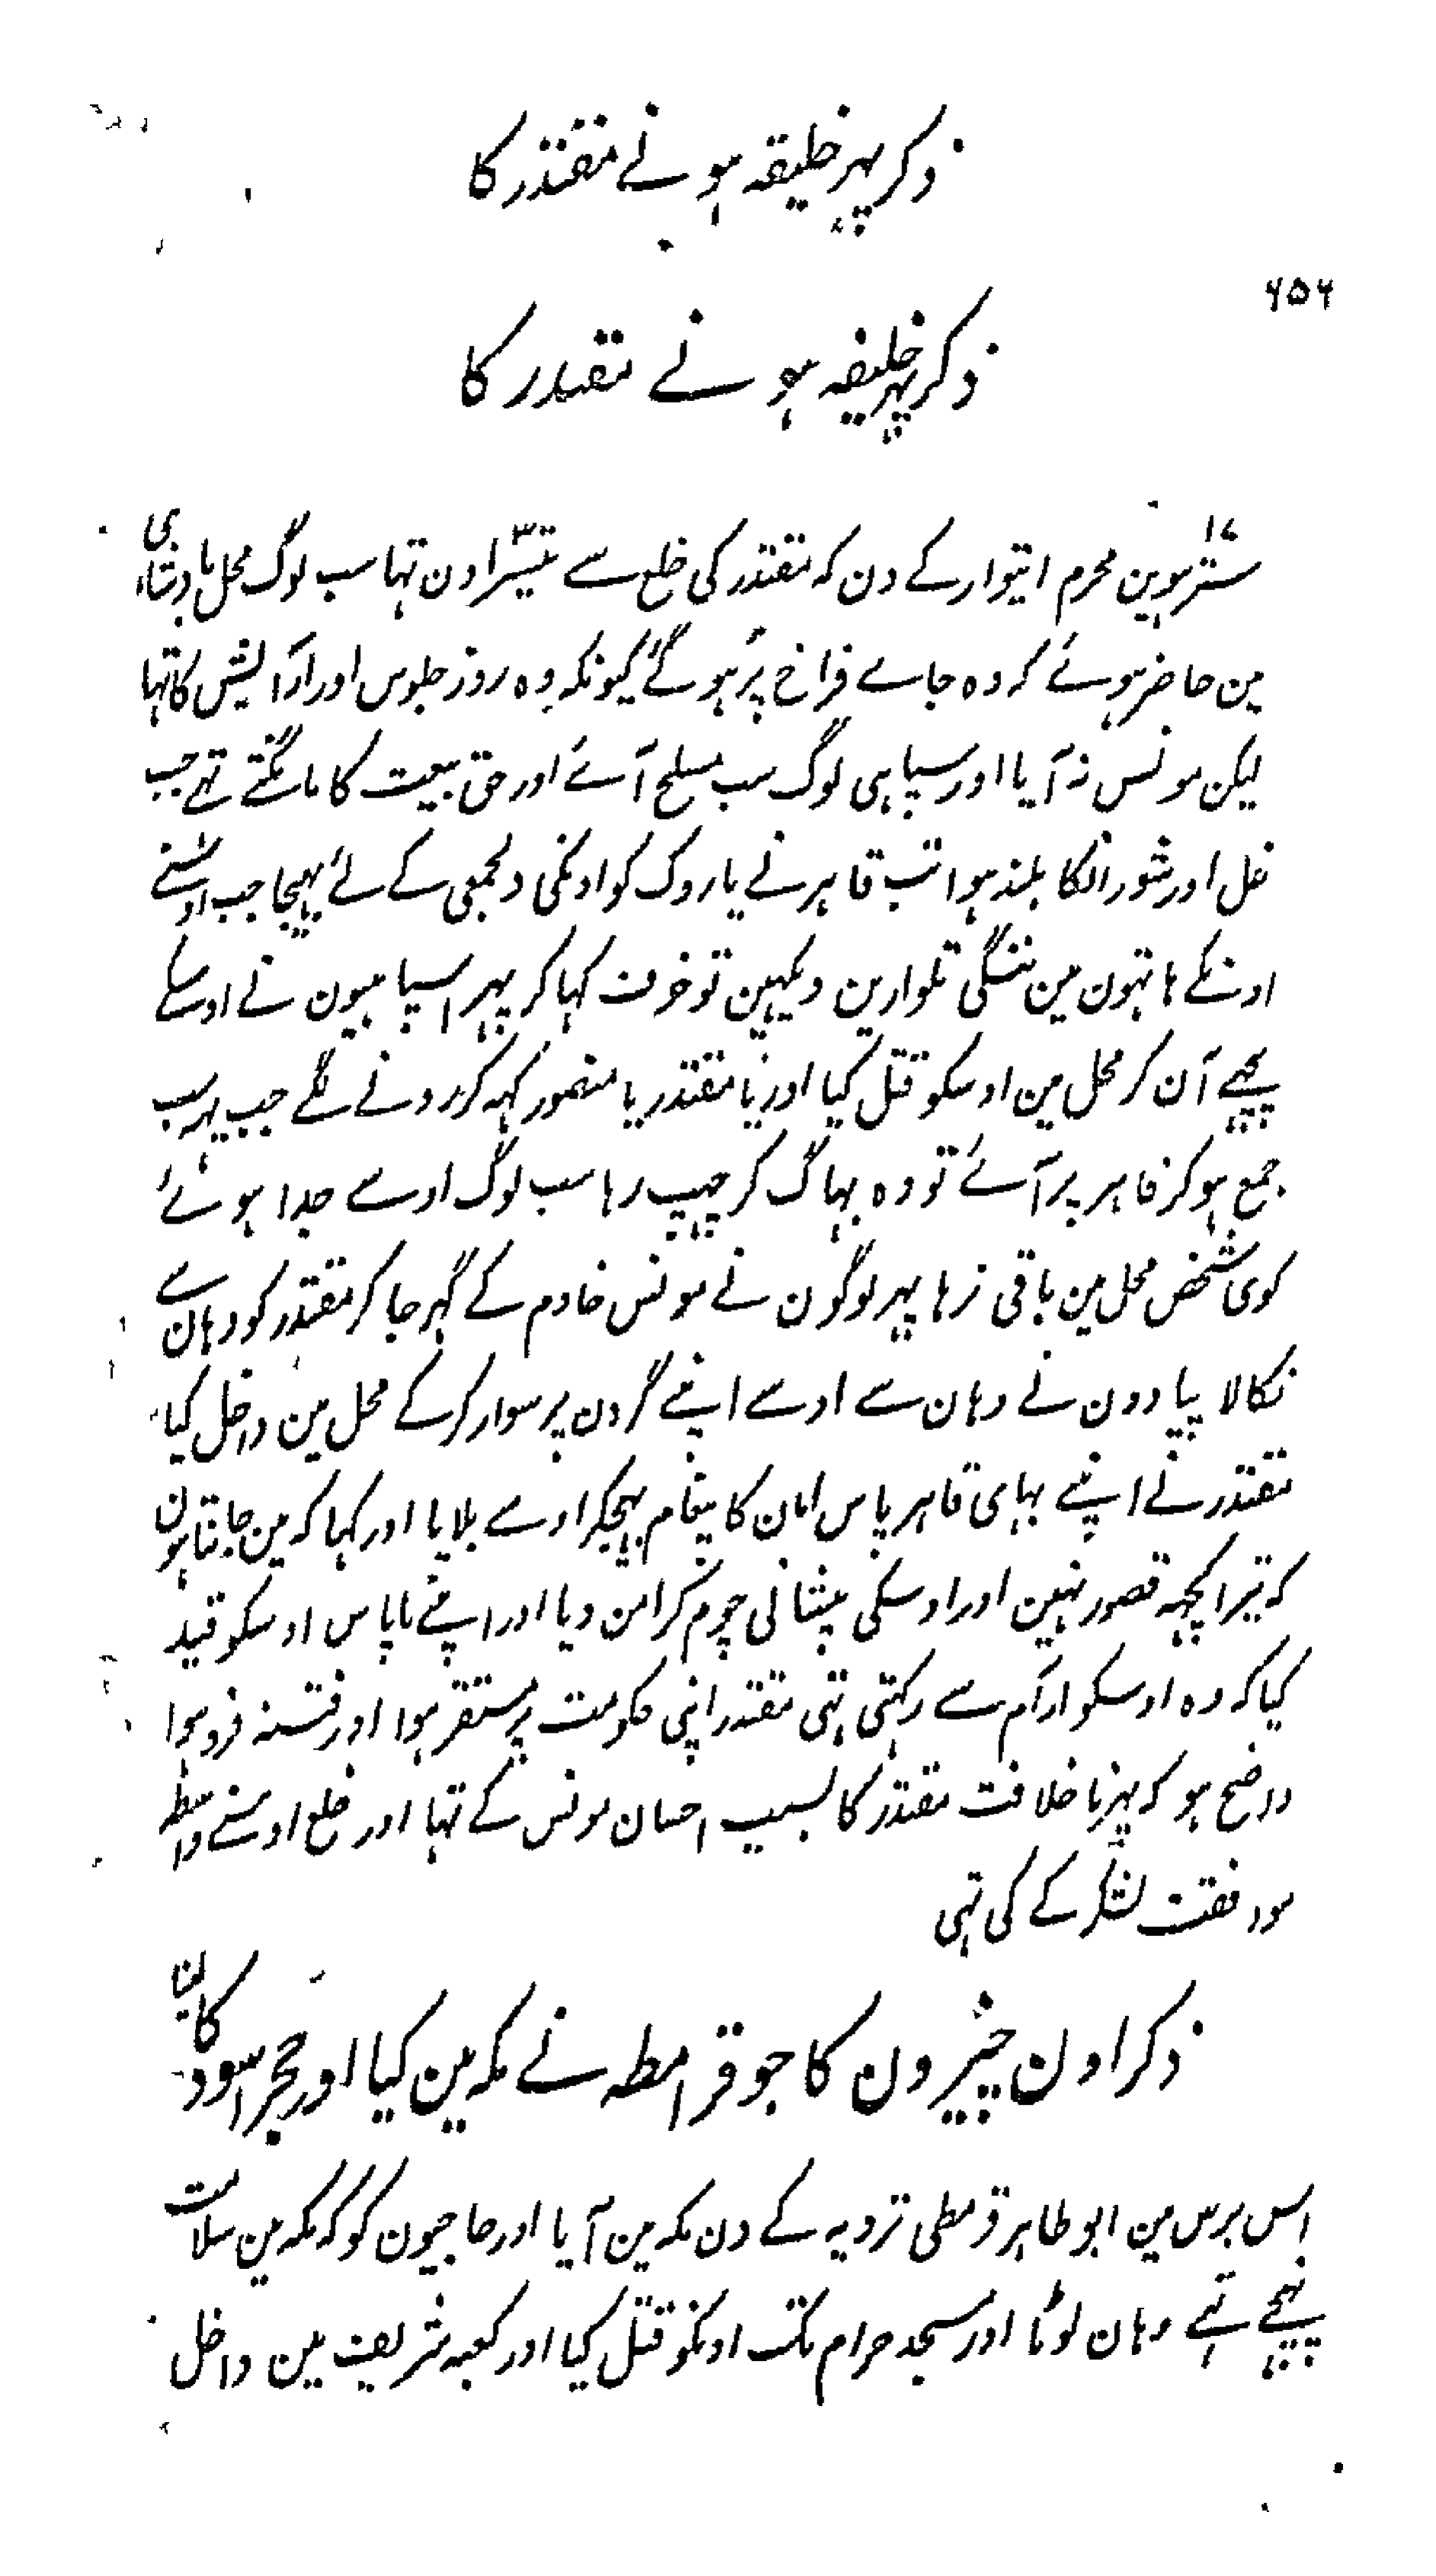 ذکر پہر خلیفہ ہونے مقتدر کا
۶۵۶
ذکر پہر خلیفہ ہونے مقتدر کا
۱۷
سترہوین محرم اتیوار کے دن کہ مقتدر کی خلع سے تیسرا دن تہا سب لوگ محل بادشاہی
مین حاضر ہوئے کہ وہ جاے فراخ پُر ہو گئے کیونکہ وہ روز جلوس اور آرایش کا تہا
لیکن مونس نہ آیا اور سپاہی لوگ سب مسلح آئے اور حق بیعت کا مانگتے تہے جب
غل اور شور انکا بلند ہوا تب قاہر نے یاروک کو اونکی دلجمعی کے لئے بہیجا جب اوسنے
اونکے ہاتہون مین ننگی تلوارین دیکہین تو خوف کہا کر پہرا سپاہیون نے اوسکے
پیچہے آن کر محل مین اوسکو قتل کیا اور یا مقتدر یا منصور کہہ کر دوڑنے لگے جب یہ سب
جمع ہو کر قاہر پر آئے تو وہ بہاگ کر چہپ رہا سب لوگ اوسے جدا ہوئے
کوی شخص محل مین باقی نرہا پہر لوگون نے مونس خادم کے گہر جا کر مقتدر کو وہان سے
نکالا پیادون نے وہان سے اوسے اپنے گردن پر سوار کر کے محل مین داخل کیا
مقتدر نے اپنے بہای قاہر پاس امان کا پیغام بہیجکر اوسے بلایا اور کہا کہ مین جانتا ہون
کہ تیرا کچہہ قصور نہین اور اوسکی پیشانی چوم کر امن دیا اور اپنے ما پاس اوسکو قید
کیا کہ وہ اوسکو آرام سے رکہتی تہی مقتدر اپنی حکومت پر مستقر ہوا اور فتنہ فرو ہوا
واضح ہو کہ پہرنا خلافت مقتدر کا بسبب احسان مونس کے تہا اور خلع اوسنے واسطے
موافقت لشکر کے کی تہی
ذکر اون چیزون کا جو قرامطہ نے مکہ مین کیا اور حجر اسود کا لینا
اس برس مین ابو طاہر قرمطی ترویہ کے دن مکہ مین آیا اور حاجیون کو کہ مکہ مین سلامت
پہنچے تہے وہان لوٹا اور مسجد حرام تک اونکو قتل کیا اور کعبہ شریف مین داخل